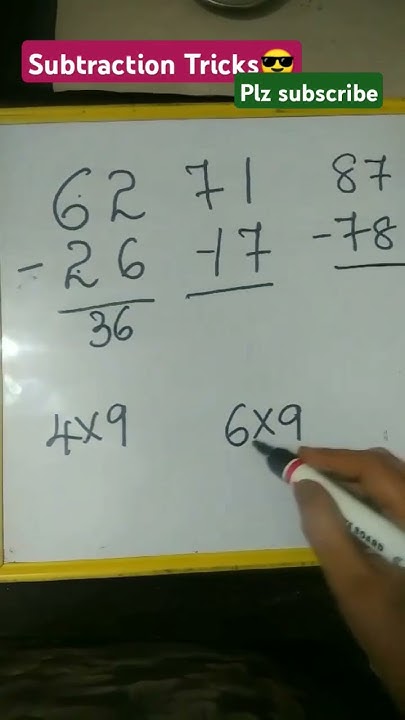 Subtraction Tricks😎
Plz subscribe
62 71 87
- 26 -17 -78
36
4x9 6x9